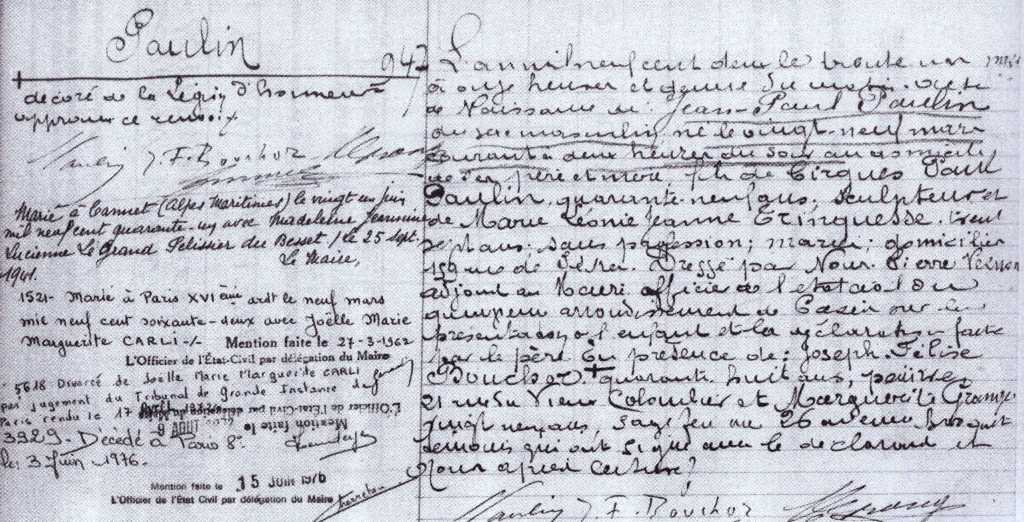 Paulin
947
décoré de la Légion d'honneur
approuvé ce renvoi
J. F. Bouchor
Marié à Cannet (Alpes Maritimes) le vingt un juin
mil neuf cent quarante-un avec Madeleine Jeannine
Lucienne Le Grand Pelissier du Besset / le 25 sept.
1941. Le Maire,
1521- Marié à Paris XVIème ardt le neuf mars
mil neuf cent soixante-deux avec Joëlle Marie
Marguerite CARLI-/- Mention faite le 27-3-1962
L'Officier de l'État-Civil par délégation du Maire
5618 Divorcé de Joelle Marie Marguerite CARLI
par jugement du Tribunal de Grande Instance de
Paris rendu le 17
9 AOUT
Mention faite le
L'Officier de l'Etat-Civil par délégation du Maire
3929- Décédé à Paris 8e
le 3 Juin 1976.
Mention faite le 15 JUIN 1976
L'Officier de l'État Civil par délégation du Maire
L'an mil neuf cent le trente un mars
à onze heures et demie du matin. Acte
de Naissance de: Jean-Paul Paulin
du sexe masculin, né le vingt-neuf mars
courant à deux heures du soir au domicile
de ses père et mère fils de Cirques Paul
Paulin, quarante-neuf ans, sculpteur et
de Marie Léonie Jeanne Tringuesse, trente
sept ans, sans profession; mariés; domiciliés
159 rue de Sèvres. Dressé par Nous, Pierre Vernon
adjoint au Maire officier de l'état civil du
quinzième arrondissement de Paris sur la
présentation de l'enfant et la déclaration faite
par le père En présence de: Joseph-Félix
Bouchor, quarante-huit ans, peintre
21 rue du Vieux Colombier et Marguerite Grange
vingt neuf ans, sage femme 26 avenue
témoins qui ont signé avec le déclarant et
Nous après lecture
J. F. Bouchor